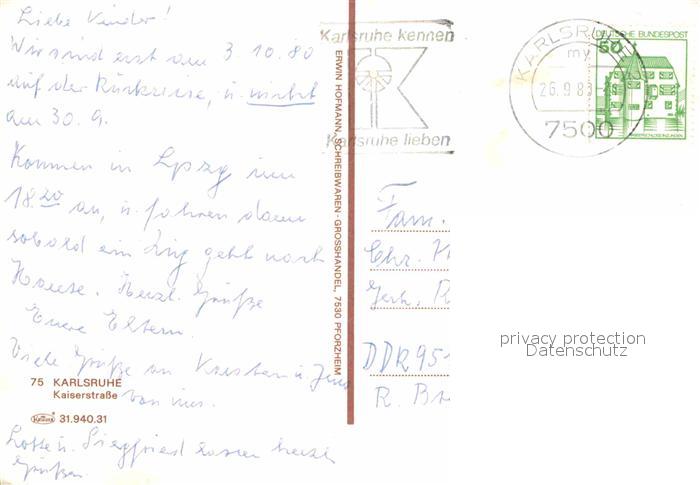 Liebe Kinder!
Wir sind erst am 3.10.80
auf der Rückreise, u. nicht
am 30.9.
Kommen in Lpzg um
18.20 an, u. fahren dann
sobald ein Zug geht nach
Hause. Herzl. Grüße
Eure Eltern.
Viele Grüße an Karsten u. Jens
von uns.
75 KARLSRUHE
Kaiserstraße
31.940.31
Lotte u. Siegfried lassen herzl.
Grüßen
ERWIN HOFMANN, SCHREIBWAREN - GROSSHANDEL, 7530 PFORZHEIM
Karlsruhe kennen
Karlsruhe lieben
KARLSRUHE
my
26.9.80
7500
DEUTSCHE BUNDESPOST
50
WASSERSCHLOSS INZLINGEN
Fam.
Chr.
Gerh.
DDR 95
R.
privacy protection
Datenschutz